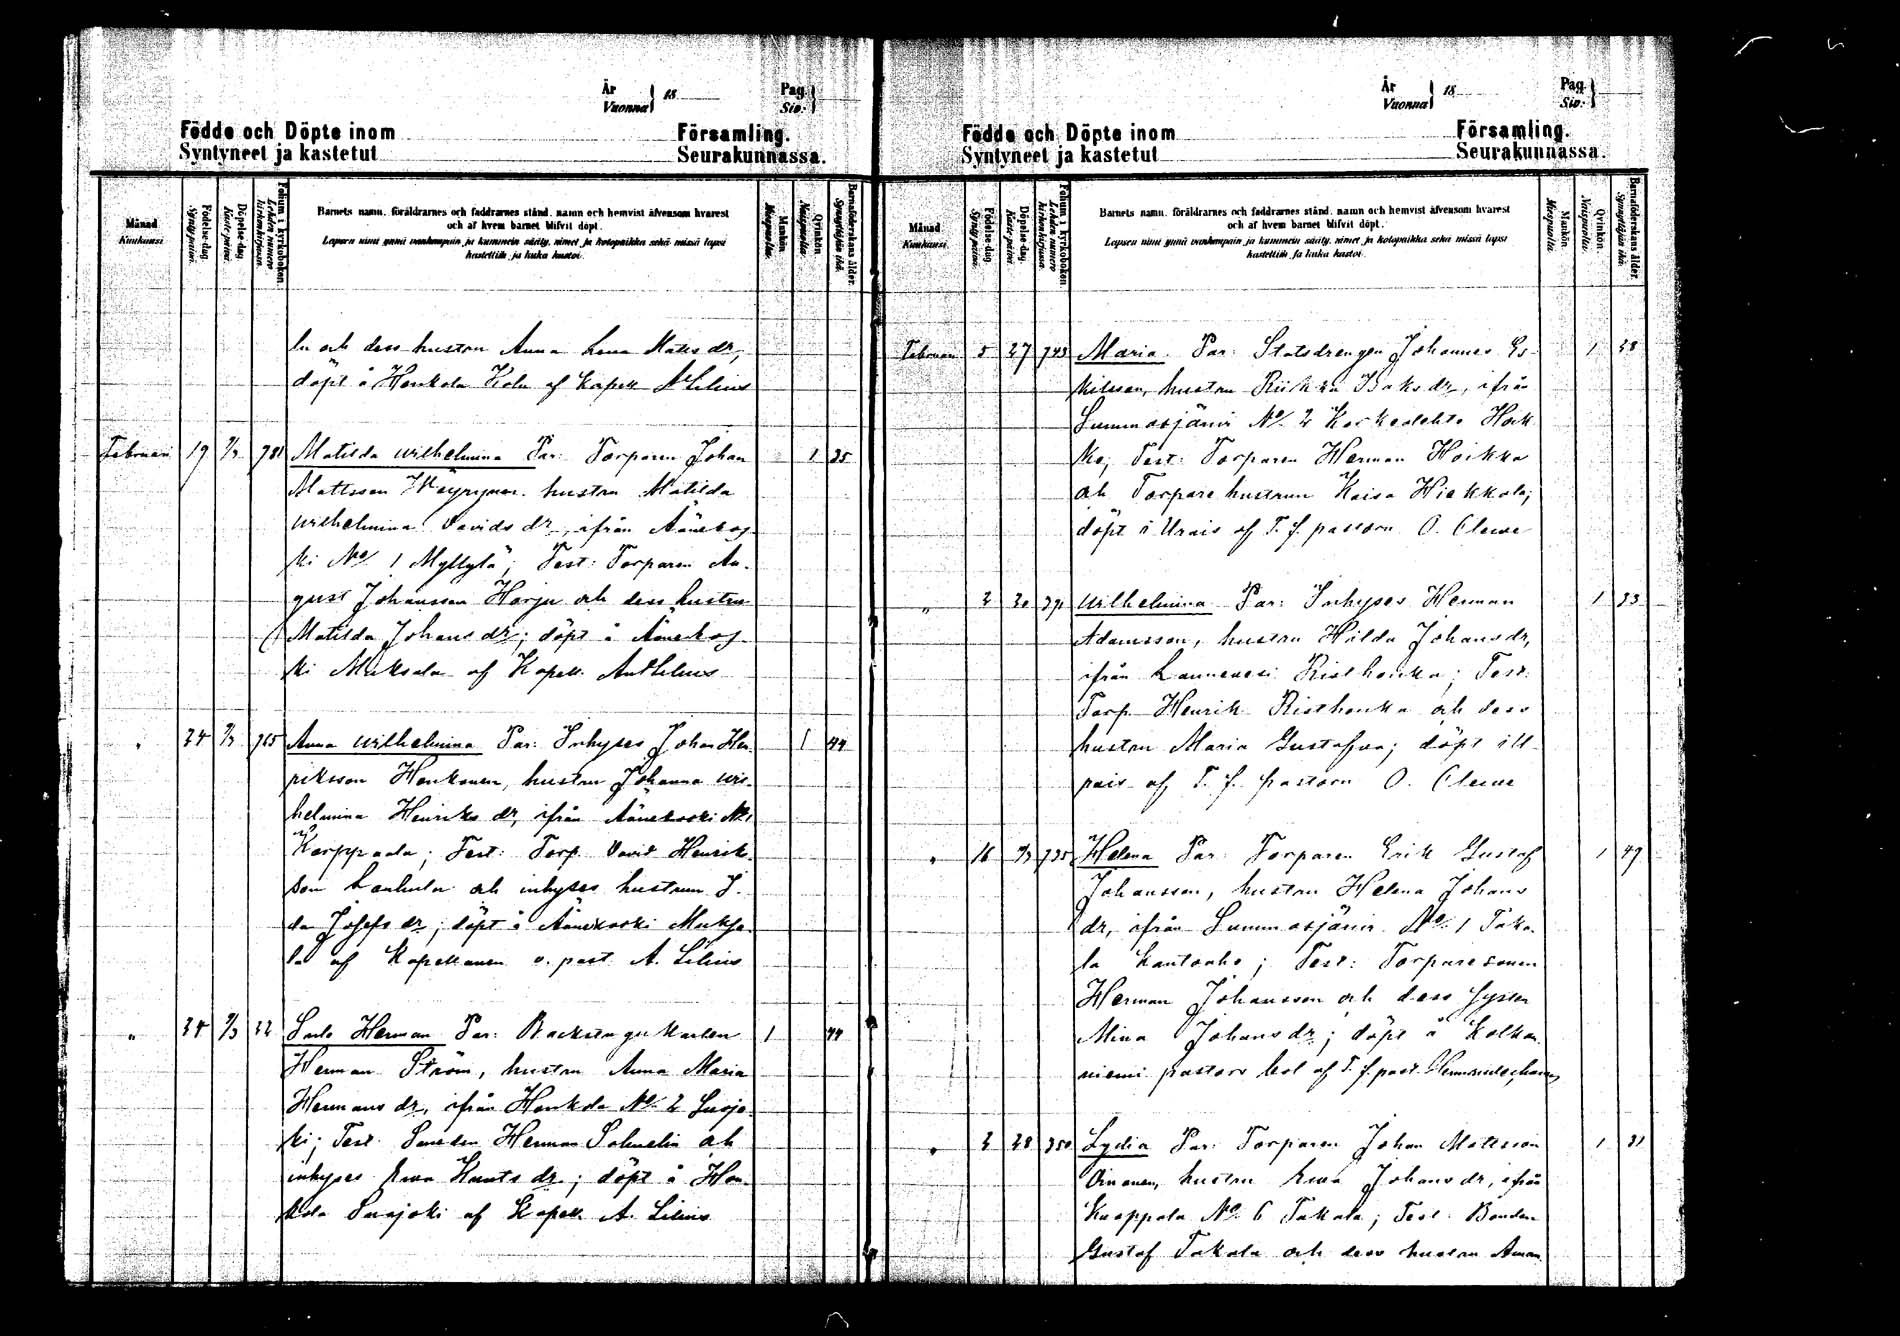 År
Vuonna } 18
Pag.
Siv. }
Födde och Döpte inom Församling.
Syntyneet ja kastetut Seurakunnassa.
Månad
Kuukausi
Födelse-dag.
Synty-päivä.
Döpelse-dag
Kaste-päivä.
Folium i kyrkoboken.
Lehden numero kirkonkirjassa.
Barnets namn, föräldrarnes och faddrarnes stånd, namn och hemvist äfvensom hvarest
och af hvem barnet blifvit döpt.
Lapsen nimi ynnä vanhempain ja kummein sääty, nimet ja kotopaikka sekä missä lapsi
kastettiin ja kuka kastoi.
Mankön
Miespuolta.
Qvinkön
Naispuolta.
Barnaföderskans ålder.
Synnyttäjän ikä.
la och dess hustru Anna Lena Matsdr,
döpt å Honkola Kola af Kapell. A Lilius
Februari 19 7/3 781 Matilda Wilhelmina Par: Torparen Johan 1 35
Mattsson Wäyrynen hustru Matilda
Wilhelmina Davidsdr, ifrån Äänekos-
ki No 1 Myllylä; Test: Torparen Au-
gust Johansson Harju och dess hustru
Matilda Johansdr; döpt å Äänekos-
ki Muksala af Kapell. And Lilius
" 24 7/3 765 Anna Wilhelmina Par: Inhyses Johan Hen- 1 44
riksson Honkonen, hustru Johanna Wil-
helmina Henriksdr, ifrån Äänekoski No 1
Karppaala; Test: Torp. David Henrik-
son Lauhula och inhyses hustrun I-
da Josefsdr; döpt å Äänekoski Muksa-
la af Kapellanen v. past. A. Lilius
" 24 7/3 22 Herman Par: Backstugukarlen 1 44
Herman Ström, hustru Anna Maria
Hermansdr, ifrån Honkola No 2 Suojo-
ki; Test. Herman och
inhyses Ewa Knutsdr; döpt å Hon-
kola Suojoki af Kapell. A. Lilius
År
Vuonna } 18
Pag.
Siv. }
Födde och Döpte inom Församling.
Syntyneet ja kastetut Seurakunnassa.
Månad
Kuukausi
Födelse-dag.
Synty-päivä.
Döpelse-dag
Kaste-päivä.
Folium i kyrkoboken.
Lehden numero kirkonkirjassa.
Barnets namn, föräldrarnes och faddrarnes stånd, namn och hemvist äfvensom hvarest
och af hvem barnet blifvit döpt.
Lapsen nimi ynnä vanhempain ja kummein sääty, nimet ja kotopaikka sekä missä lapsi
kastettiin ja kuka kastoi.
Mankön
Miespuolta
Qvinkön
Naispuolta.
Barnaföderskans ålder.
Synnyttäjän ikä.
Februari 5 27 743 Maria. Par: Statsdrengen Johannes Es- 1 28
kilsson, hustru Riikka Isaksdr, ifrån
Summasjärvi No 2 Korkealehto
Test: Torparen Herman Hoikka
och Torpare hustrun Kaisa Hiekkola;
döpt i Urais af T. f. pastorn O. Clewe
" 2 20 Wilhelmina Par: Inhyses Herman 1 33
Adamsson, hustru Hilda Johansdr,
ifrån Lannevesi Risthonka; Test:
Torp. Henrik Risthonka och dess
hustru Maria döpt i U-
rais af T. f. pastorn O. Clewe
" 16 735 Helena Par: Torparen Erik Gustaf 1 49
Johansson, hustru Helena Johans-
dr, ifrån Summasjärvi No 1 Taka-
la Kantoaho; Test: Torparesonen
Herman Johansson och dess syster
Mina Johansdr; döpt å Kolkan-
niemi pastors bol af T. f. past.
" 2 28 350 Lydia Par: Torparen Johan Mattsson 1 31
Oinonen, hustru Ewa Johansdr, ifrån
Kuoppala No 6 Takala; Test: Bonden
Gustaf Takala och dess hustru Aman